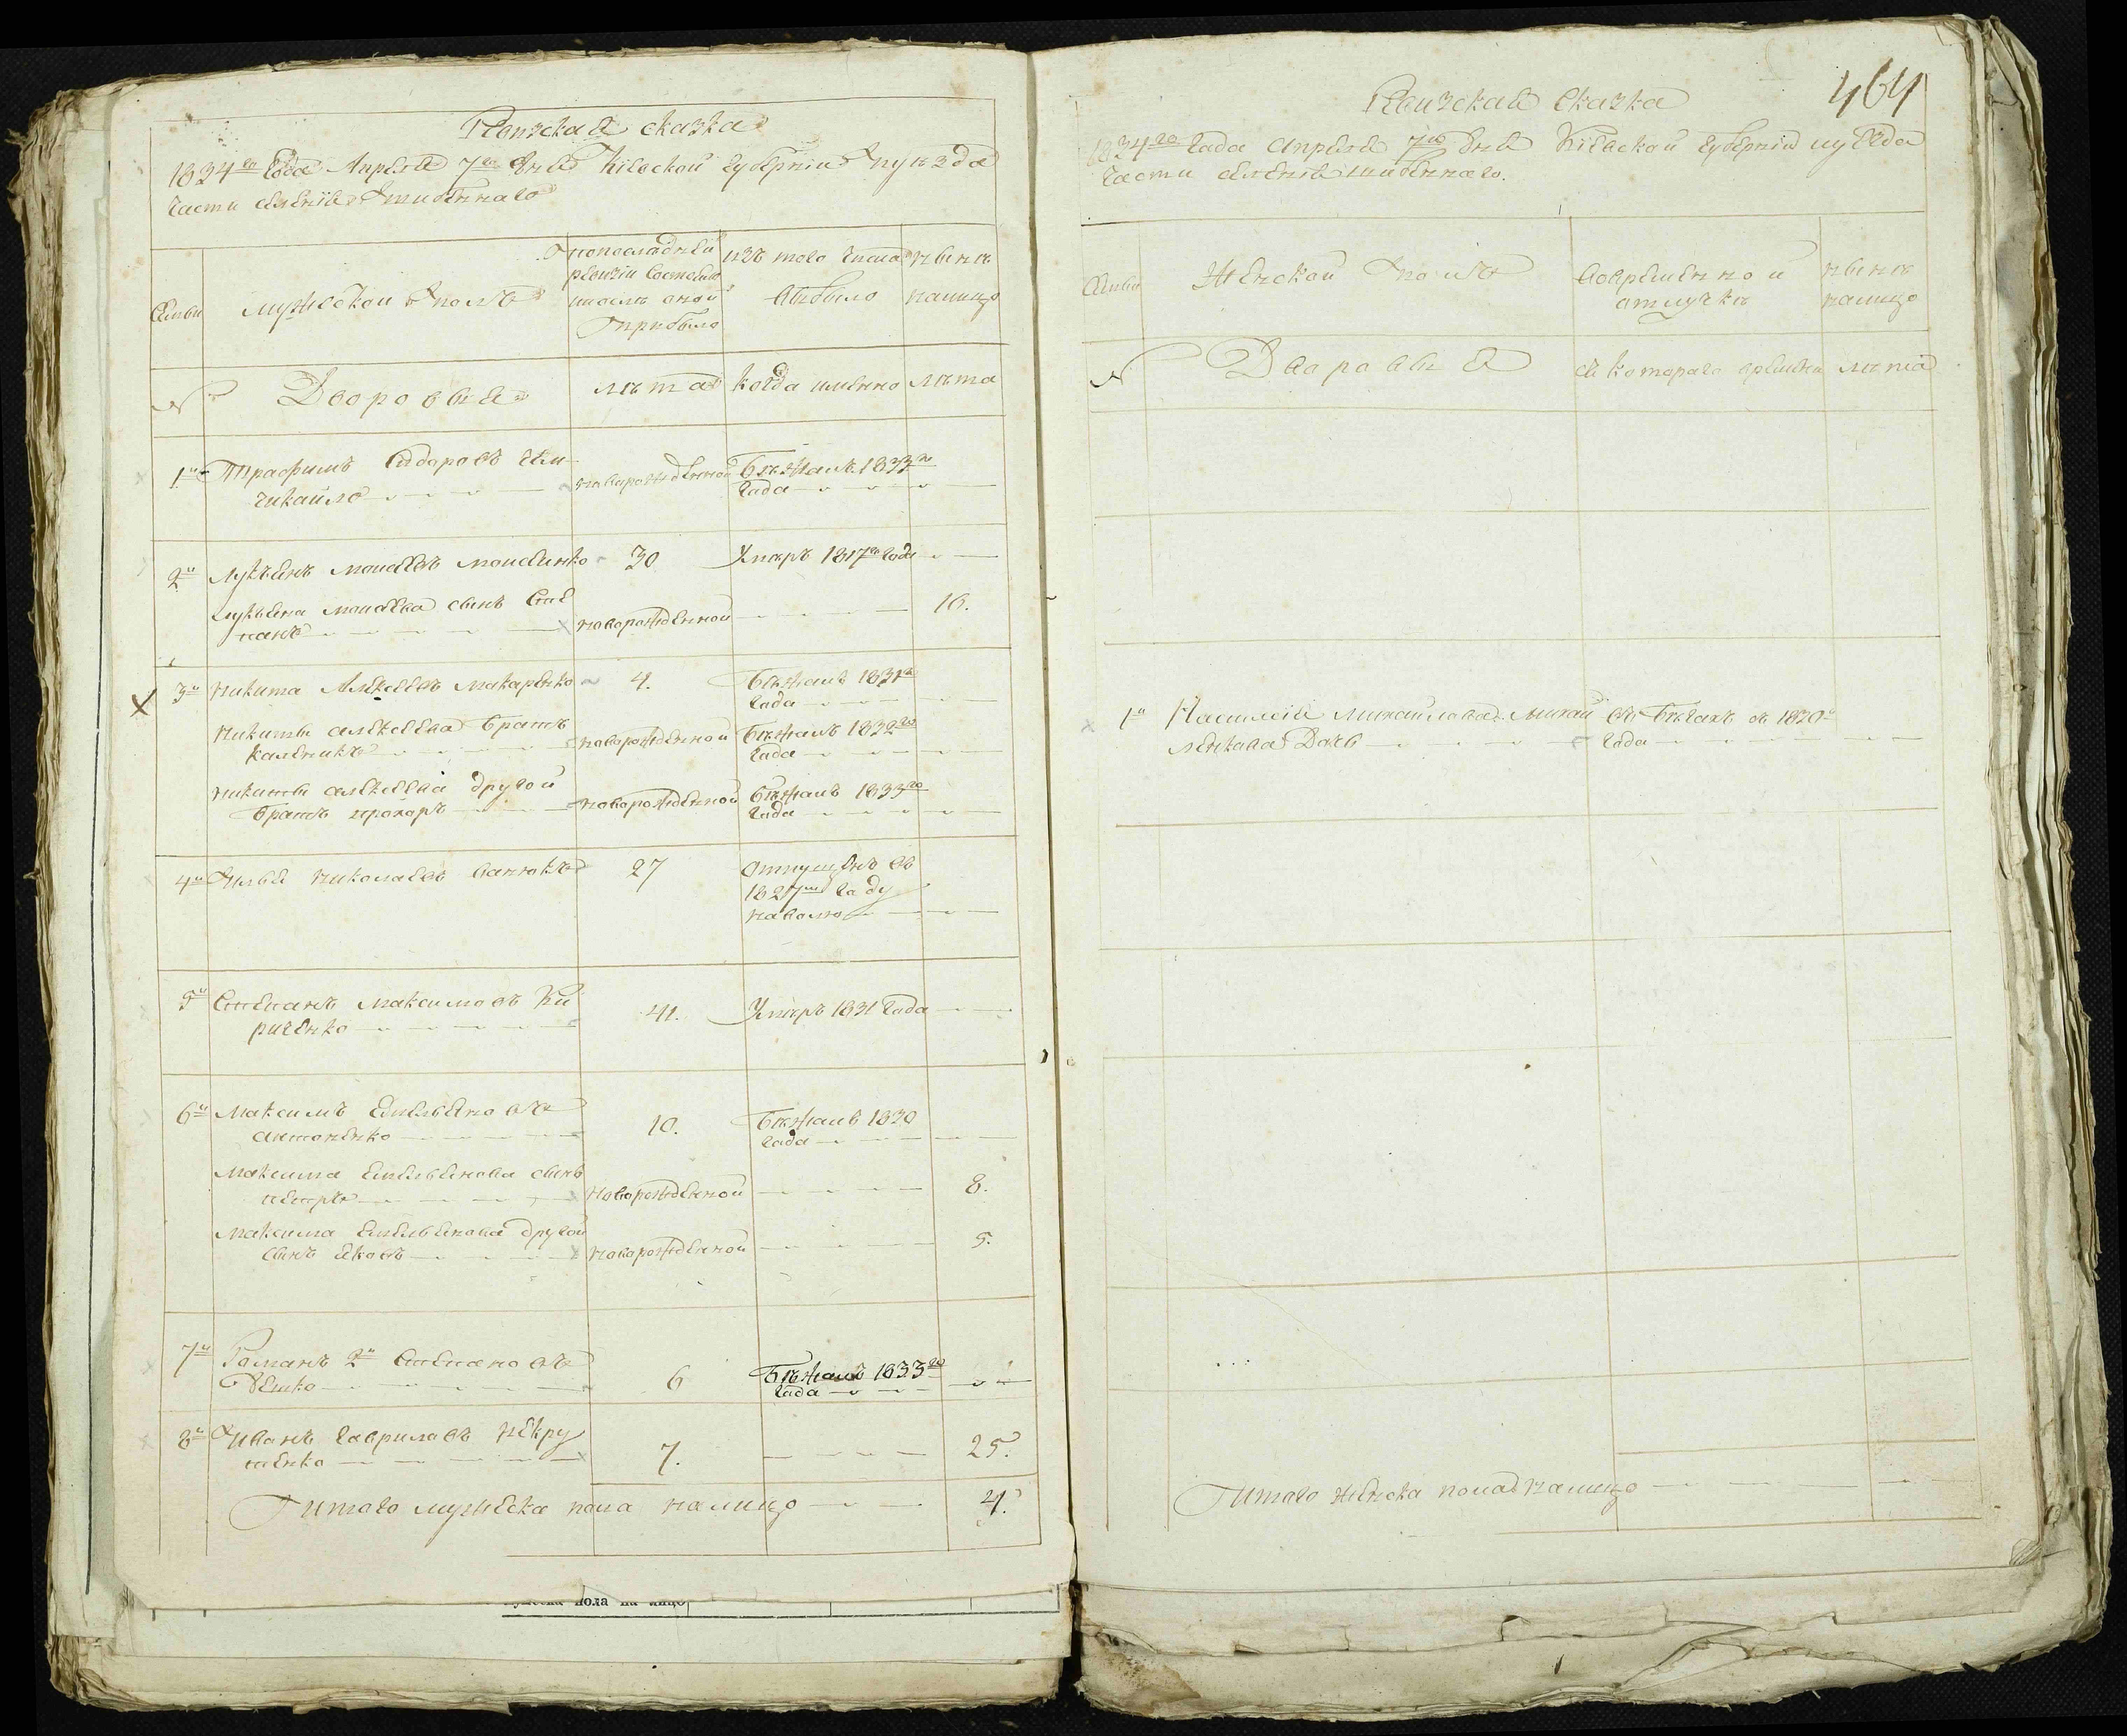 Ревизская сказка
1834го Года Апреля 7го дня Кіевской Губерніи и уѣзда
части селенія
Семьи
Мужеской полъ
по последней
ревизіи состояло
и после оной
прибыло
изъ того числа
выбыло
ныне
налицо
№
Дворовыя
лѣта
когда именно
лѣта
1й Трофимъ Сидоровъ
новорожденной
Бѣжалъ 1833го
Года
2й Лукьянъ Моисеевъ Моисеенко
30
Умеръ 1817го Года
Лукьяна Моисеева сынъ Сте
панъ
новорожденной
16.
3й Никита Алексеевъ Макаренко
4.
Бѣжалъ 1831го
Года
Никиты Алексеева братъ
Каленикъ
новорожденной
Бѣжалъ 1832го
Года
Никиты Алексеева другой
братъ Прохоръ
новорожденной
Бѣжалъ 1833го
Года
4й Илья Николаевъ
27
отпущенъ въ
1827м Году
наволю
5й Степанъ Максимовъ Ки
риченко
41.
Умеръ 1831 Года
6й Максимъ Емельяновъ
Антоненко
10.
Бѣжалъ 1830
Года
Максима Емельянова сынъ
Петръ
новорожденной
8.
Максима Емельянова другой
сынъ Яковъ
новорожденной
5.
7й Романъ 2й Степановъ
6
Бѣжалъ 1833го
Года
8й Иванъ Гавриловъ Некру
тенко
7.
25.
Итого мужеска пола налицо
4.
пола на лицо
464
Ревизская сказка
1834го Года Апреля 7го дня Кіевской Губерніи и уѣзда
части селенія
Семьи
Женской полъ
Во временной
отлучкѣ
ныне
налицо
№
Дворовыя
съ котораго времени
лѣта
1я Настасія Михайлова Михай
ленкова Дочь
въ Бѣгахъ съ 1820го
Года
Итого женска пола налицо